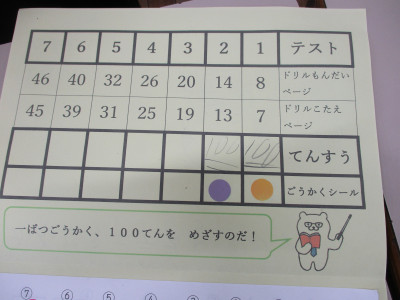 テスト 1 2 3 4 5 6 7
ドリルもんだいページ 8 14 20 26 32 40 46
ドリルこたえページ 7 13 19 25 31 39 45
てんすう 100 100
ごうかくシール
一ぱつごうかく、１００てんを めざすのだ！
⑦ ⑥ ⑤